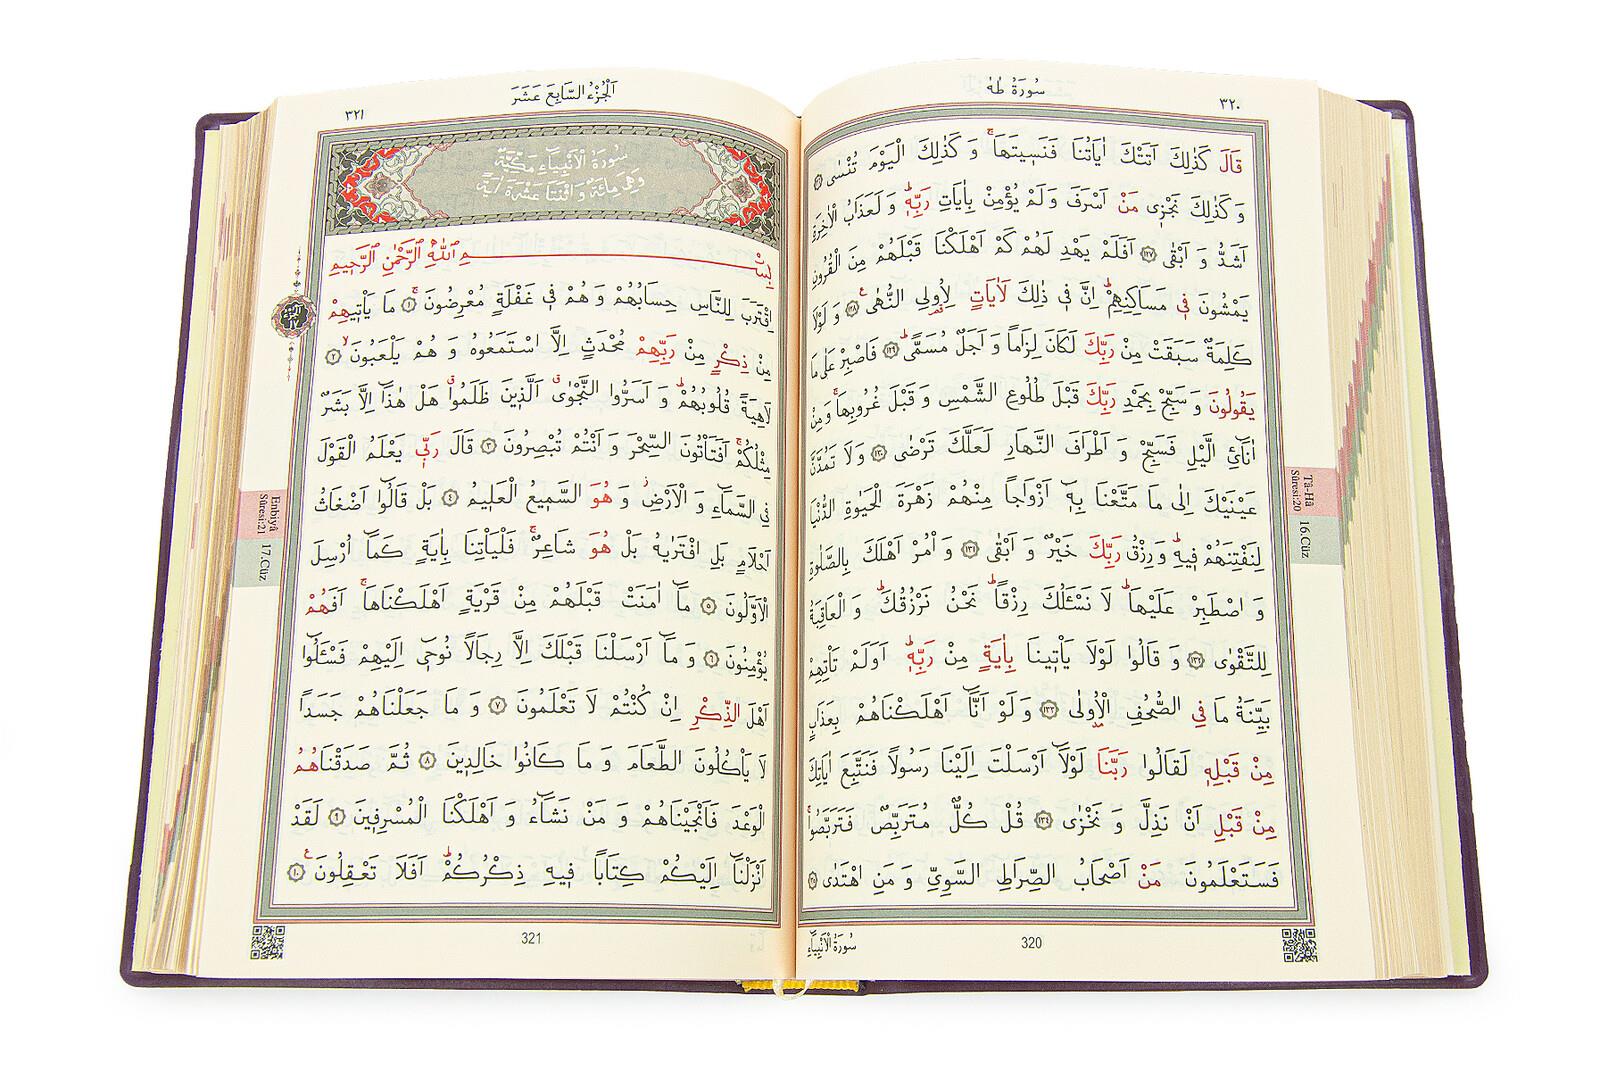 سُورَةُ طٰهٰ
٣٢٠
قَالَ كَذٰلِكَ اَتَتْكَ اٰيَاتُنَا فَنَسٖيتَهَاۚ وَ كَذٰلِكَ الْيَوْمَ تُنْسٰى ﴿١٢٦﴾
وَ كَذٰلِكَ نَجْزٖى مَنْ اَسْرَفَ وَ لَمْ يُؤْمِنْ بِاٰيَاتِ رَبِّهٖؕ وَ لَعَذَابُ الْاٰخِرَةِ
اَشَدُّ وَ اَبْقٰى ﴿١٢٧﴾ اَفَلَمْ يَهْدِ لَهُمْ كَمْ اَهْلَكْنَا قَبْلَهُمْ مِنَ الْقُرُونِ
يَمْشُونَ فٖى مَسَاكِنِهِمْؕ اِنَّ فٖى ذٰلِكَ لَاٰيَاتٍ لِاُولِى النُّهٰىࣖ ﴿١٢٨﴾ وَ لَوْلَا
كَلِمَةٌ سَبَقَتْ مِنْ رَبِّكَ لَكَانَ لِزَاماً وَ اَجَلٌ مُسَمًّىؕ ﴿١٢٩﴾ فَاصْبِرْ عَلٰى مَا
يَقُولُونَ وَ سَبِّحْ بِحَمْدِ رَبِّكَ قَبْلَ طُلُوعِ الشَّمْسِ وَ قَبْلَ غُرُوبِهَاۚ وَ مِنْ
اٰنَآئِ الَّيْلِ فَسَبِّحْ وَ اَطْرَافَ النَّهَارِ لَعَلَّكَ تَرْضٰى ﴿١٣٠﴾ وَ لَا تَمُدَّنَّ
عَيْنَيْكَ اِلٰى مَا مَتَّعْنَا بِهٖٓ اَزْوَاجاً مِنْهُمْ زَهْرَةَ الْحَيٰوةِ الدُّنْيَا
لِنَفْتِنَهُمْ فٖيهِؕ وَ رِزْقُ رَبِّكَ خَيْرٌ وَ اَبْقٰى ﴿١٣١﴾ وَ اْمُرْ اَهْلَكَ بِالصَّلٰوةِ
وَ اصْطَبِرْ عَلَيْهَاؕ لَا نَسْـَٔلُكَ رِزْقاًؕ نَحْنُ نَرْزُقُكَؕ وَ الْعَاقِبَةُ
لِلتَّقْوٰى ﴿١٣٢﴾ وَ قَالُوا لَوْلَا يَأْتٖينَا بِاٰيَةٍ مِنْ رَبِّهٖؕ اَوَلَمْ تَأْتِهِمْ
بَيِّنَةُ مَا فِى الصُّحُفِ الْاُولٰى ﴿١٣٣﴾ وَ لَوْ اَنَّٓا اَهْلَكْنَاهُمْ بِعَذَابٍ
مِنْ قَبْلِهٖ لَقَالُوا رَبَّنَا لَوْلَٓا اَرْسَلْتَ اِلَيْنَا رَسُولاً فَنَتَّبِعَ اٰيَاتِكَ
مِنْ قَبْلِ اَنْ نَذِلَّ وَ نَخْزٰى ﴿١٣٤﴾ قُلْ كُلٌّ مُتَرَبِّصٌ فَتَرَبَّصُواۚ
فَسَتَعْلَمُونَ مَنْ اَصْحَابُ الصِّرَاطِ السَّوِىِّ وَ مَنِ اهْتَدٰى ﴿١٣٥﴾
سُورَةُ الْاَنْبِيَٓاءِ
320
Tâ-Hâ
Sûresi:20
16.Cüz
اَلْجُزْءُ السَّابِعَ عَشَرَ
٣٢١
سُورَةُ الْاَنْبِيَاءِ مَكِّيَّةٌ
وَ هِىَ مِائَةٌ وَ اثْنَتَا عَشْرَةَ اٰيَةً
بِسْمِ اللّٰهِ الرَّحْمٰنِ الرَّحٖيمِ
اِقْتَرَبَ لِلنَّاسِ حِسَابُهُمْ وَ هُمْ فٖى غَفْلَةٍ مُعْرِضُونَۚ ﴿١﴾ مَا يَأْتٖيهِمْ
مِنْ ذِكْرٍ مِنْ رَبِّهِمْ مُحْدَثٍ اِلَّا اسْتَمَعُوهُ وَ هُمْ يَلْعَبُونَۙ ﴿٢﴾
لَاهِيَةً قُلُوبُهُمْؕ وَ اَسَرُّوا النَّجْوٰىۗ اَلَّذٖينَ ظَلَمُواۗ هَلْ هٰذَٓا اِلَّا بَشَرٌ
مِثْلُكُمْۚ اَفَتَأْتُونَ السِّحْرَ وَ اَنْتُمْ تُبْصِرُونَ ﴿٣﴾ قَالَ رَبّٖى يَعْلَمُ الْقَوْلَ
فِى السَّمَٓاءِ وَ الْاَرْضِؗ وَ هُوَ السَّمٖيعُ الْعَلٖيمُ ﴿٤﴾ بَلْ قَالُٓوا اَضْغَاثُ
اَحْلَامٍ بَلِ افْتَرٰيهُ بَلْ هُوَ شَاعِرٌۚ فَلْيَأْتِنَا بِاٰيَةٍ كَمَٓا اُرْسِلَ
الْاَوَّلُونَ ﴿٥﴾ مَٓا اٰمَنَتْ قَبْلَهُمْ مِنْ قَرْيَةٍ اَهْلَكْنَاهَاۚ اَفَهُمْ
يُؤْمِنُونَ ﴿٦﴾ وَ مَٓا اَرْسَلْنَا قَبْلَكَ اِلَّا رِجَالاً نُوحٖٓى اِلَيْهِمْ فَسْـَٔلُٓوا
اَهْلَ الذِّكْرِ اِنْ كُنْتُمْ لَا تَعْلَمُونَ ﴿٧﴾ وَ مَا جَعَلْنَاهُمْ جَسَداً
لَا يَأْكُلُونَ الطَّعَامَ وَ مَا كَانُوا خَالِدٖينَ ﴿٨﴾ ثُمَّ صَدَقْنَاهُمُ
الْوَعْدَ فَاَنْجَيْنَاهُمْ وَ مَنْ نَشَٓاءُ وَ اَهْلَكْنَا الْمُسْرِفٖينَ ﴿٩﴾ لَقَدْ
اَنْزَلْنَٓا اِلَيْكُمْ كِتَاباً فٖيهِ ذِكْرُكُمْؕ اَفَلَا تَعْقِلُونَࣖ ﴿١٠﴾
321
Enbiyâ
Sûresi:21
17.Cüz